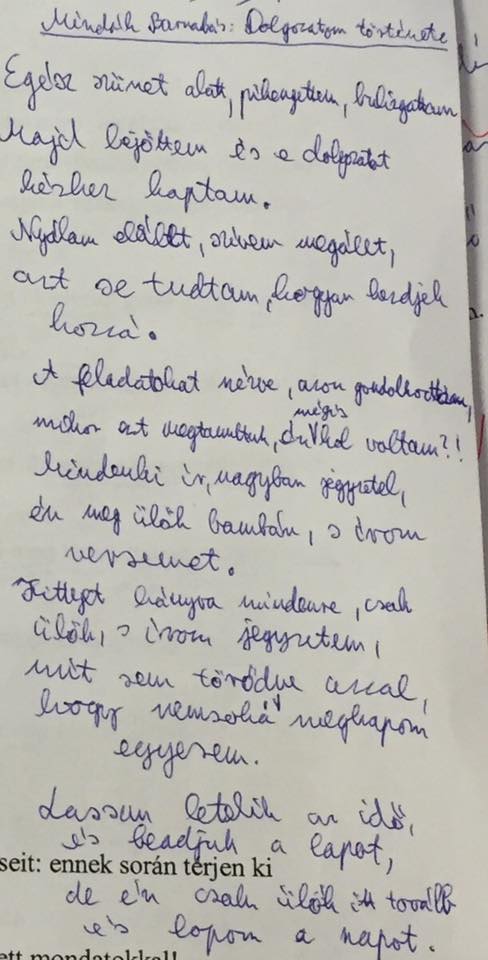 Mindrák Barnabás: Dolgozatom története
Egész szünet alatt, pihengettem, bulizgattam
Majd bejöttem és a dolgozatot
kézhez kaptam.
Nyálam elállt, szívem megállt,
azt se tudtam, hogyan kezdjek
hozzá.
A feladatokat nézve, azon gondolkodtam,
mikor ezt megtanultuk, én mégis hol voltam?!
Mindenki ír, nagyban jegyzetel,
én meg ülök bambán, s írom
versemet.
Fittyet hányva mindenre, csak
ülök, s írom jegyzetem,
mit sem törődve azzal,
hogy nemsoká megkapom
egyesem.
Lassan letelik az idő,
és beadjuk a lapot,
seit: ennek során térjen ki
de én csak ülök itt tovább
és lopom a napot.
ett mondatokkal!